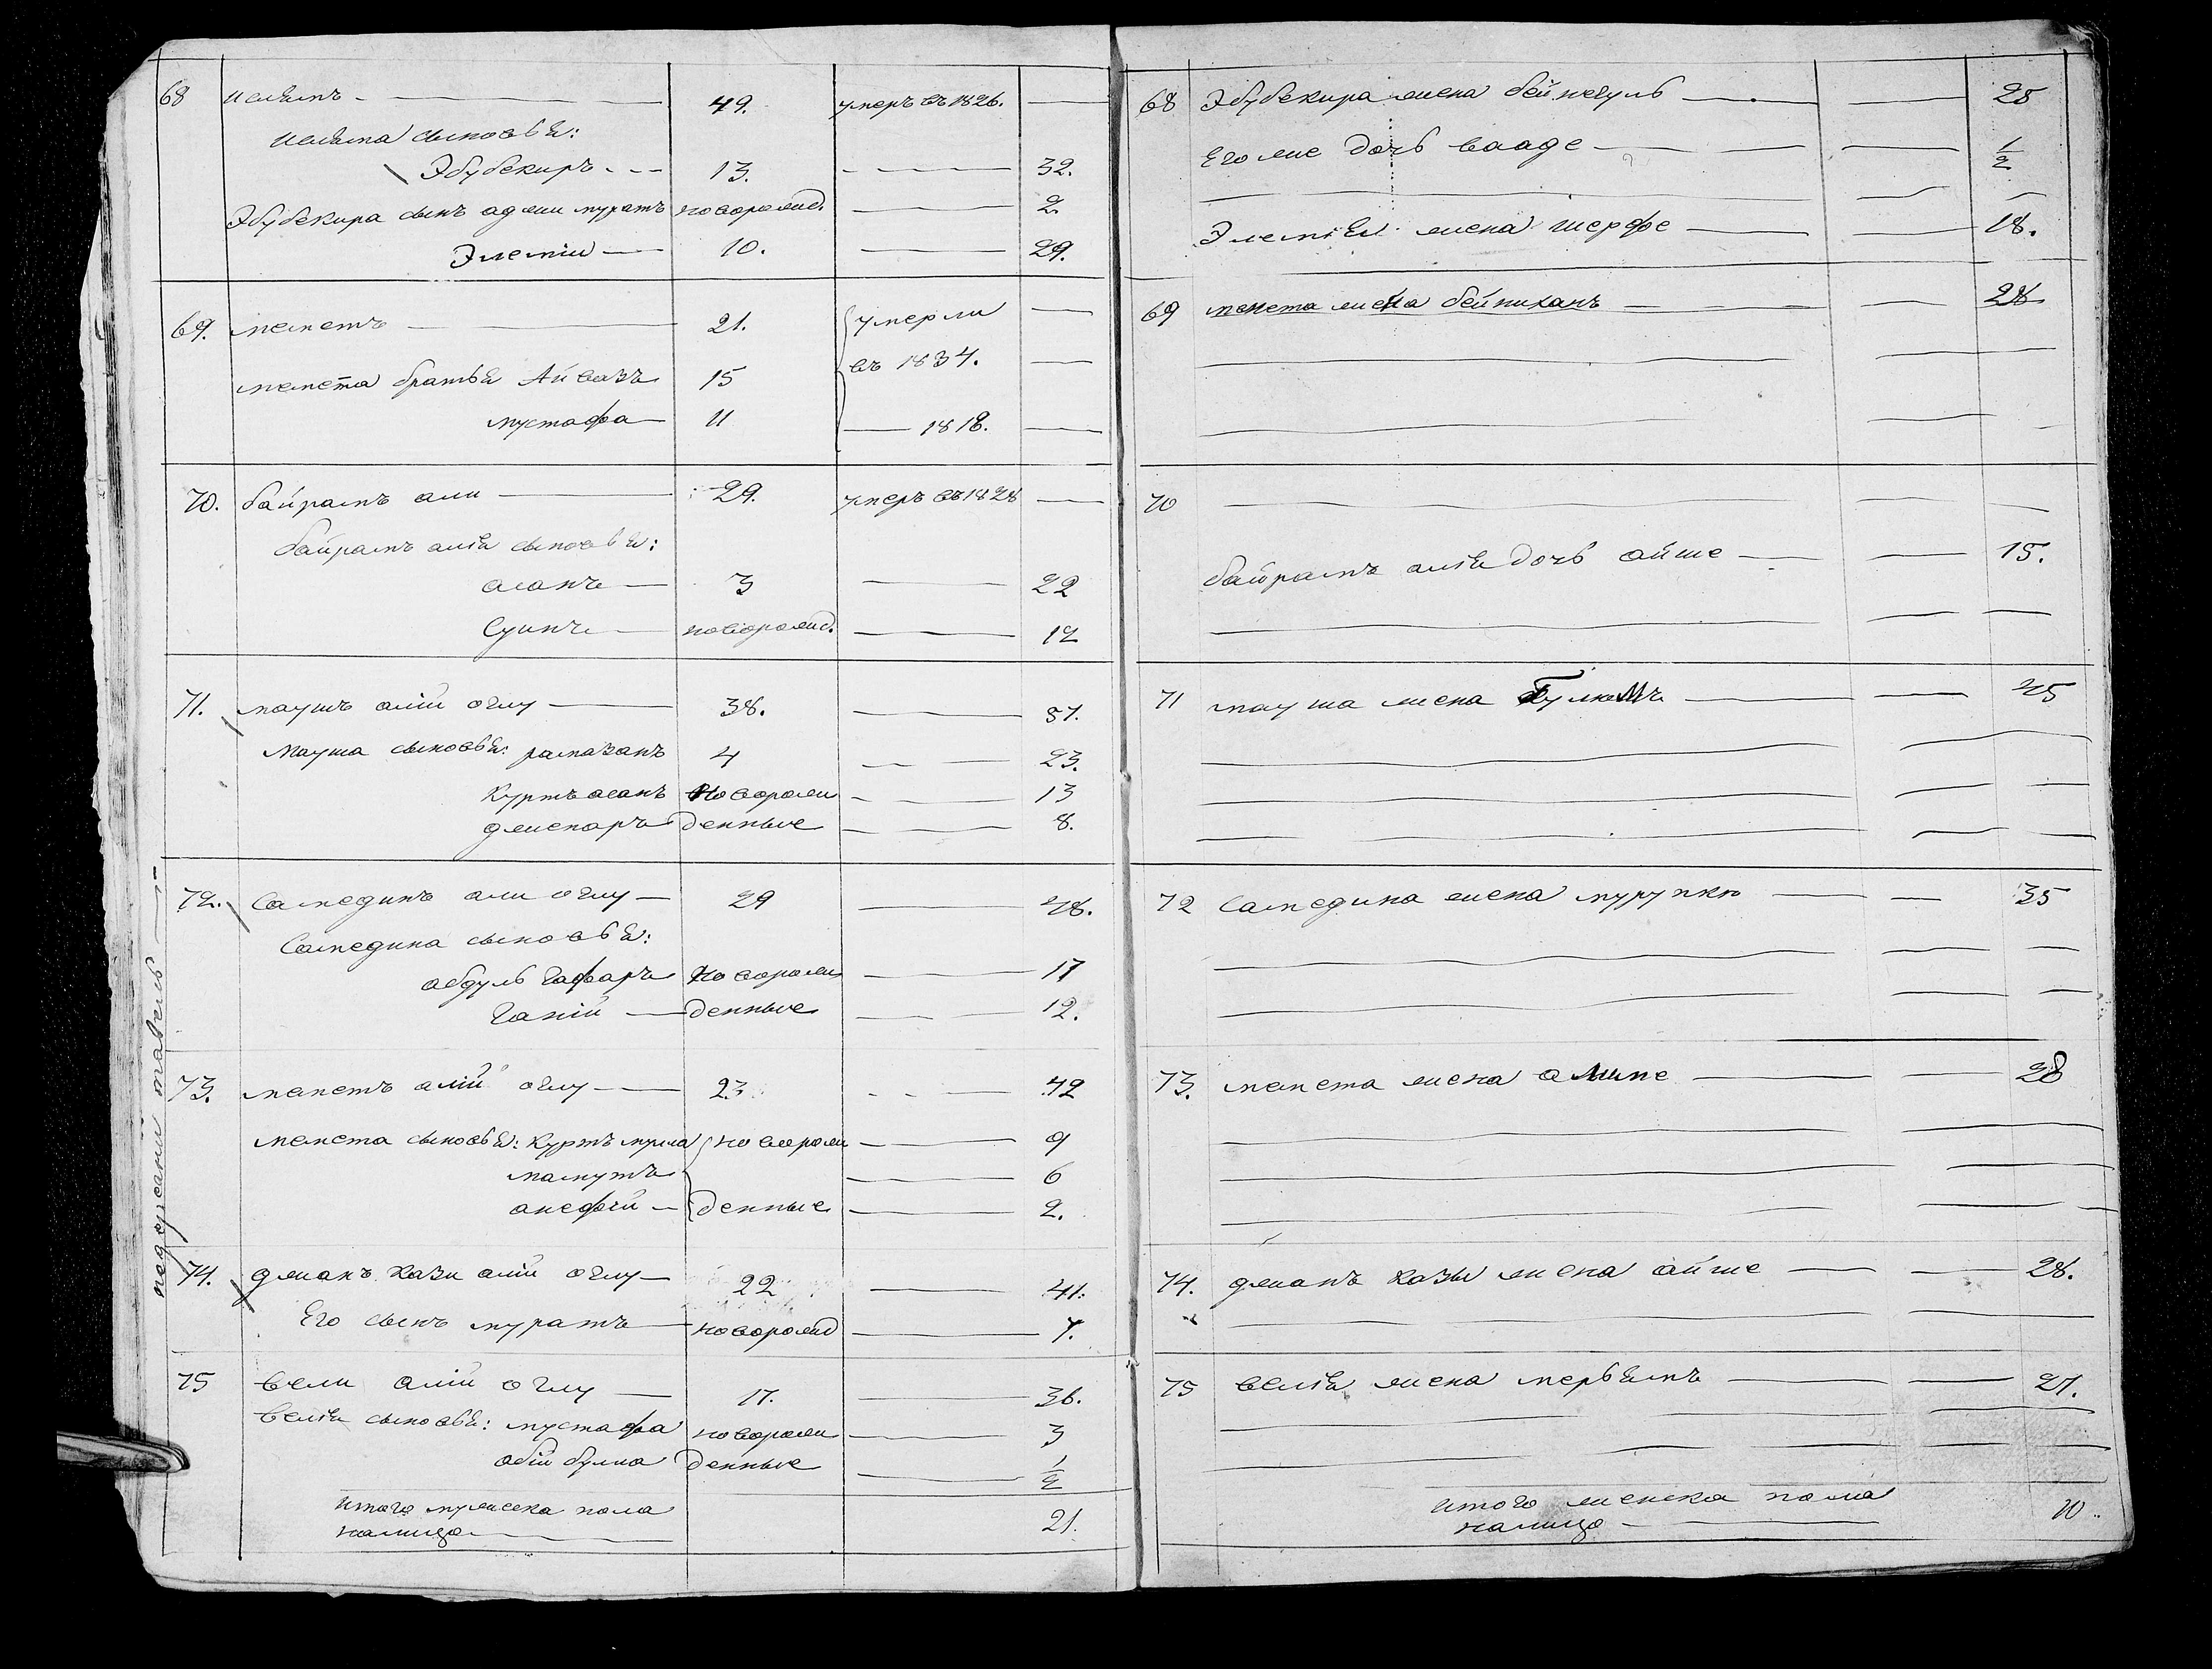 68 Исляמъ 49. умеръ въ 1826.
Исляма сыновья:
Эбубекиръ 13. 32.
Эбубекира сынъ аджи муратъ новорожд. 2.
Элемши 10. 29.
69. меметъ 21. умерли
въ 1834.
мемета братья Айвазъ 15
мустафа 11 1818.
70. байрамъ али 29. умеръ въ 1828
байрамъ алія сыновья:
асанъ 3 22
Суинъ новорожд. 12
71. маушъ алій оглу 38. 57.
Мауша сыновья: рамазанъ 4 23.
Куртъ асанъ Новорож 13
джепаръ денные 8.
72. Самединъ али оглу 29 48.
Самедина сыновья:
абдуль гафаръ Новорож 17
Ганій денные 12.
73. меметъ алій оглу 23 42
мемета сыновья: Куртъ мулла новорож 9
мамутъ 6
анефій денные 2.
74. джанъ Казы алій оглу 22 41.
Его сынъ муратъ новорожд 7.
75 вели алій оглу 17. 36.
Велія сыновья: мустафа новорож 3
абій булла денные 1/2
итого мужеска пола
налицо 21.
68 Эбубекира жена бейнегуль 25
Его же дочь вааде 1/2
жена шерфе 18.
69 мемета жена бейниханъ 28
70
байрамъ алія дочь айше 15.
71 мауша жена Гулюмъ 45
72 Самедина жена 35
73. мемета жена алиме 28
74. джанъ казы жена айше 28.
75 велія жена мерьямъ 27.
итого женска пола
налицо 10.